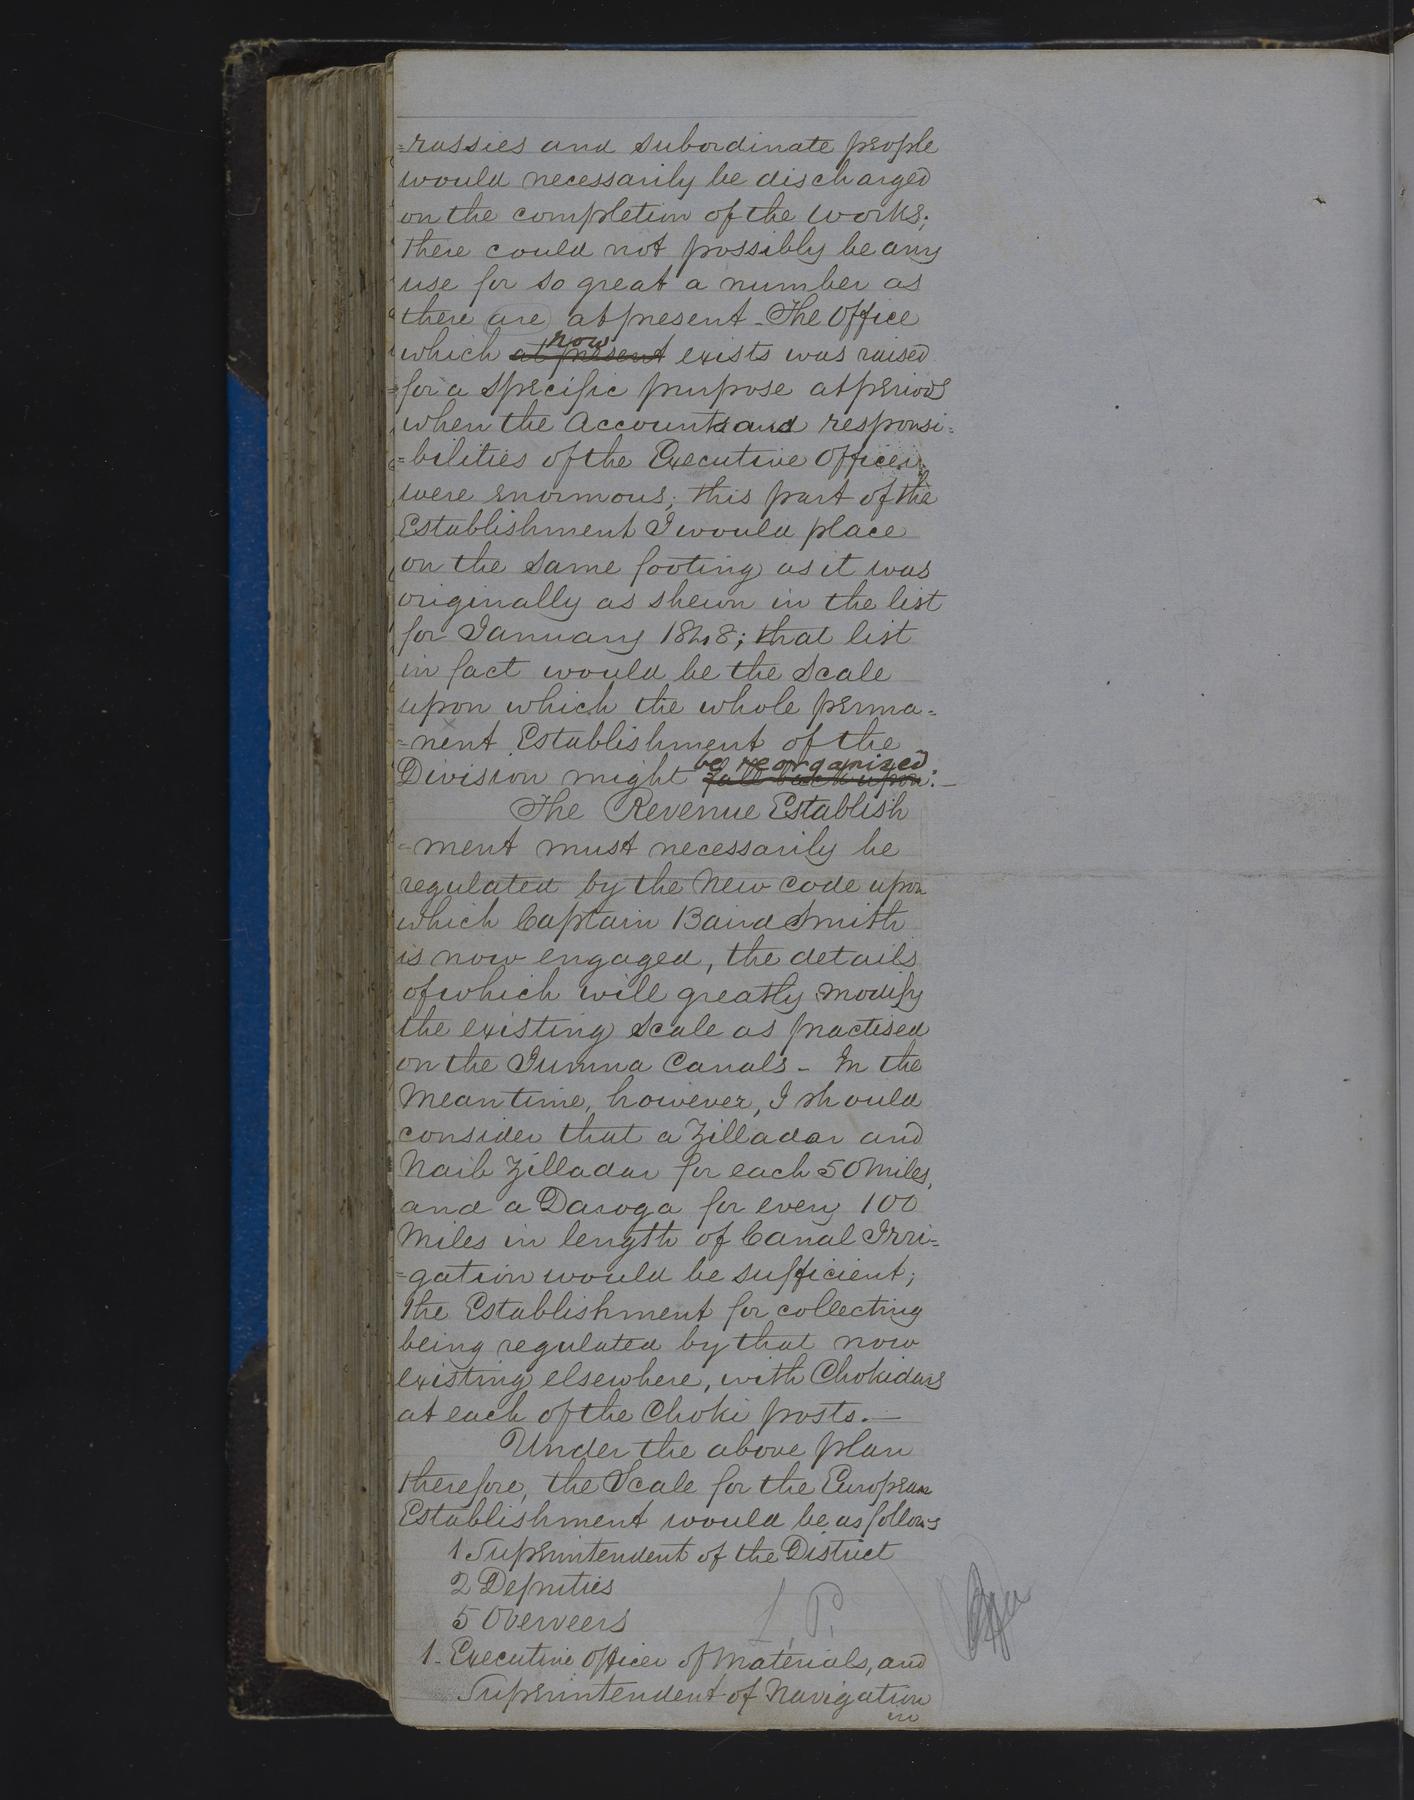 =rassies and subordinate people
would necessarily be discharged
on the completion of the works;
there could not possibly be any
use for so great a number as
there are at present_ The Office
now
which at present exists was raised
for a specific purpose at periods
when the Accounts and responsi=
=bilities of the Executive Officer
were enormous; this part of the
Establishment I would place
on the same footing as it was
originally as shewn in the list
for January 1848; that list
in fact would be the Scale
upon which the whole perma=
=nent Establishment of the
be reorganized
Division might fall back upon._
The Revenue Establish
=ment must necessarily be
regulated by the New Code upon
which Captain Baird Smith
is now engaged, the details
of which will greatly modify
the existing Scale as practised
on the Jumna Canals_ In the
Meantime, however, I should
consider that a Zilladar and
Naib Zilladar for each 50 Miles,
and a Daroga for every 100
Miles in length of Canal Irri=
=gation would be sufficient;
the Establishment for collecting
being regulated by that now
existing elsewhere, with Chokidars
at each of the Choki posts._
Under the above plan
therefore, the Scale for the European
Establishment would be as follows
1 Superintendent of the District
2 Deputies
5 Overseers
L.P.
1_ Executive Officer of Materials, and
Superintendent of Navigation
in